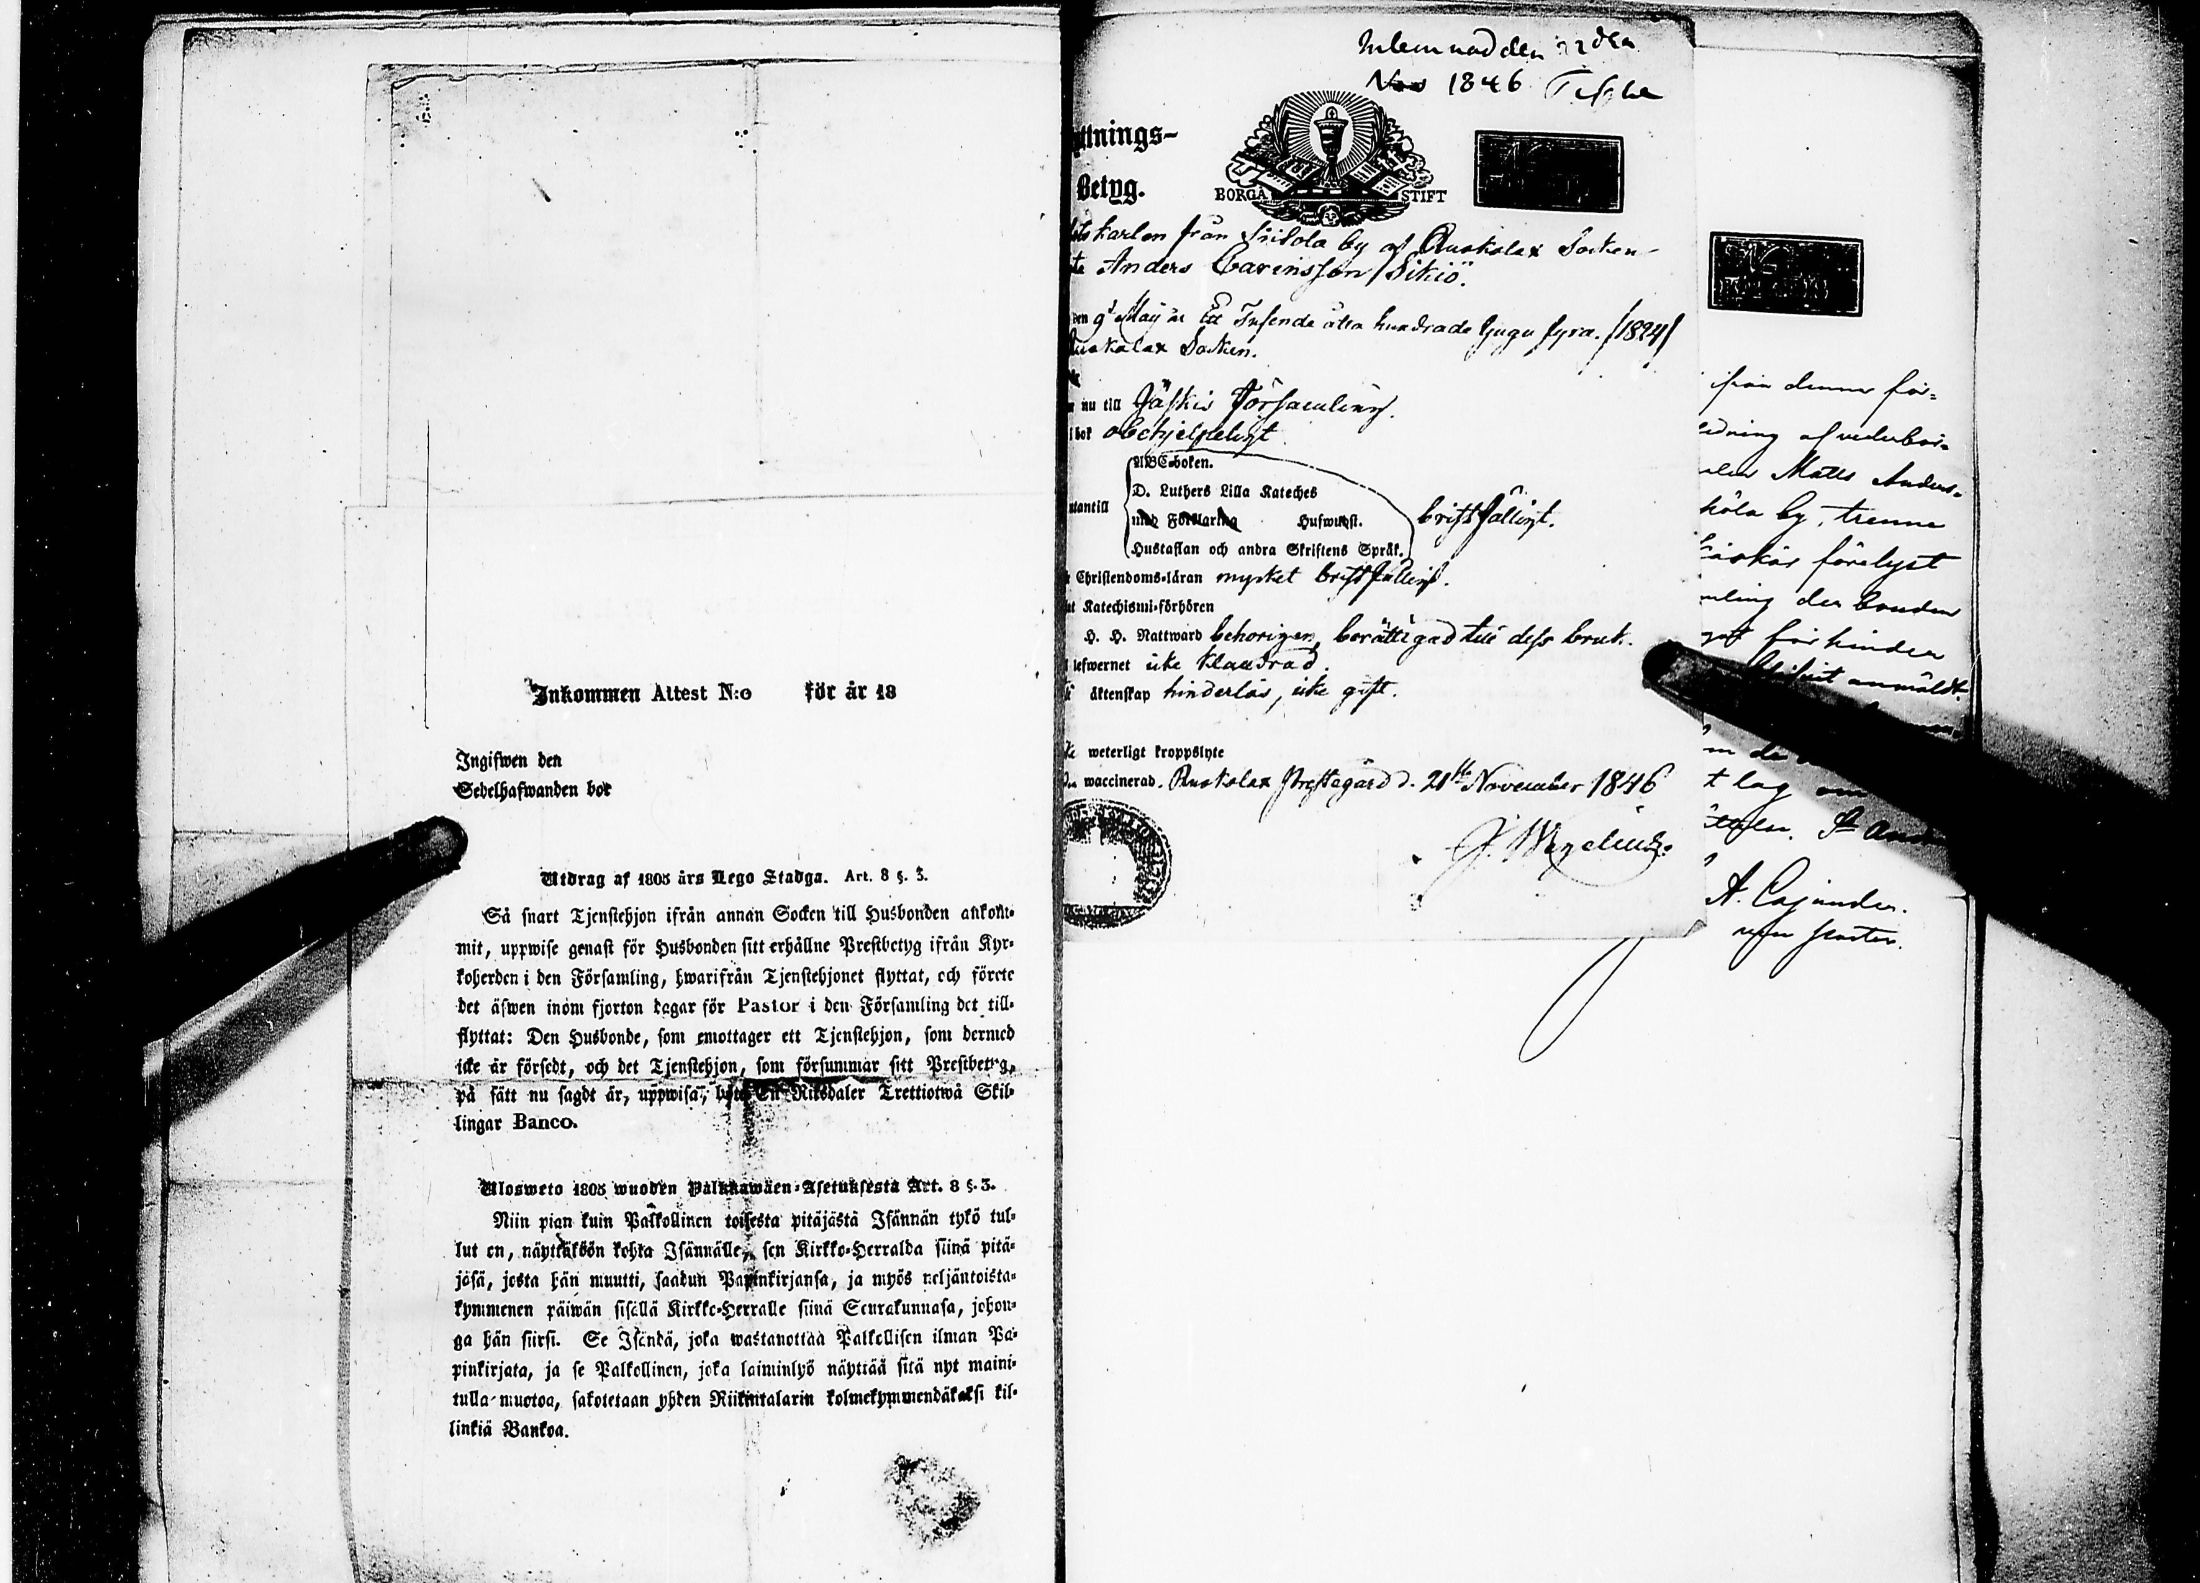 Inkommen Attest N:o för år 18
Ingifwen den
Sedelhafwanden bor
Utdrag af 1805 års Lego Stadga. Art. 8 §. 3.
Så snart Tjenstehjon ifrån annan Socken till Husbonden ankom-
mit, uppwise genast för Husbonden sitt erhållne Prestbetyg ifrån Kyr-
koherden i den Församling, hwarifrån Tjenstehjonet flyttat, och förete
det äfwen inom fjorton dagar för Pastor i den Församling det till-
flyttat: Den Husbonde, som emottager ett Tjenstehjon, som dermed
icke är försedt, och det Tjenstehjon, som försummar sitt Prestbetyg,
på sätt nu sagdt är, uppwisa, böte En Riksdaler Trettiotwå Skil-
lingar Banco.
Ulosweto 1805 wuoden Palkkawäen-Asetuksesta Art. 8 §. 3.
Niin pian kuin Palkollinen toisesta pitäjästä Isännän tykö tul-
lut on, näyttäköön kohta Isännälle, sen Kirkko-Herralda siinä pitä-
jäsä, josta hän muutti, saadun Papinkirjansa, ja myös neljäntoista-
kymmenen päiwän sisällä Kirkko-Herralle siinä Seurakunnasa, johon-
ga hän siirsi. Se Isäntä, joka wastanottaa Palkollisen ilman Pa-
pinkirjata, ja se Palkollinen, joka laiminlyö näyttää sitä nyt maini-
tulla muotoa, sakotetaan yhden Riikintalarin kolmekymmendäkaksi kil-
linkiä Bankoa.
1846
ttnings-
Betyg.
BORGÅ STIFT
karlen från by af Ruokolax Socken
Anders Carinsson Sikiö.
den 9 Maij år Ett Tusende åtta hundrade tjugu fyra. /1824/
Ruokolax Socken.
nu till Jäskis Församling.
i bok obehjelpeligt
ABC-boken.
D. Luthers Lilla Kateches
med Förklaring Huswudst.
utantill bristfälligt.
Hustaflan och andra Skriftens Språk.
Christendoms-läran mycket bristfällig.
Katechismi-förhören
H. H. Nattward behörigen berättigad till dess bruk.
lefwernet icke klandrad.
äktenskap hinderlös, icke gift.
weterligt kroppslyte
waccinerad. Ruokolax Prestegård d. 21 November 1846
ifrån denna för-
Matts Anders-
by, trenne
förelyst
der bonden
för hinder
anmäldt.
t lag
A. Cajander.